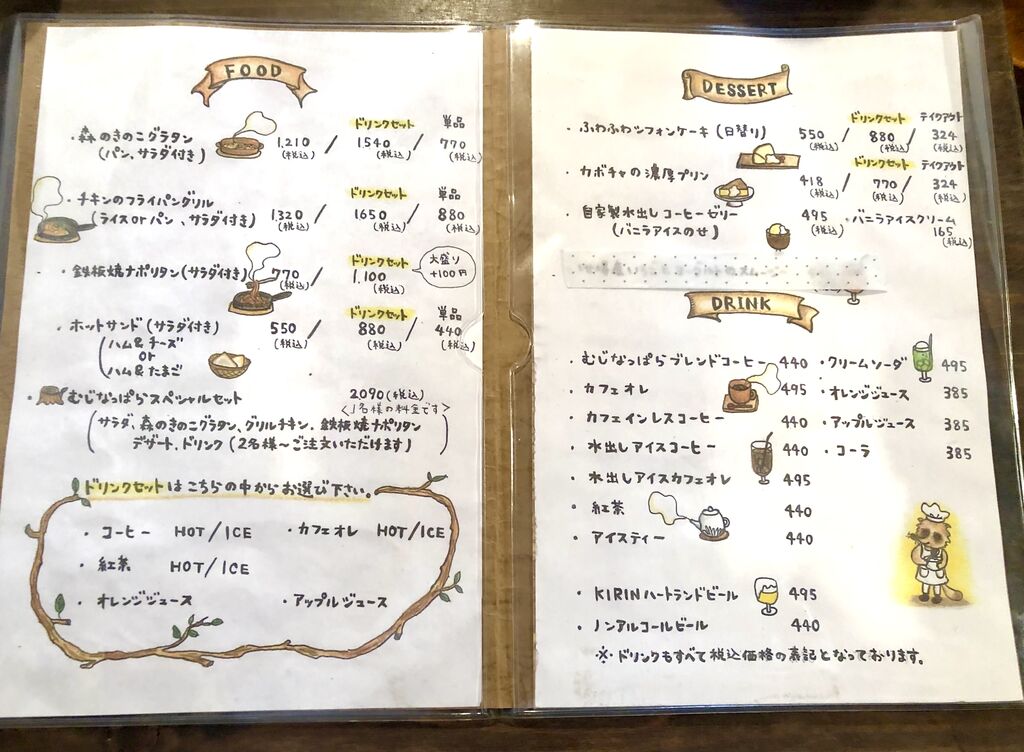 FOOD
・森のきのこグラタン
(パン、サラダ付き)
1,210 (税込) / ドリンクセット 1540 (税込) / 単品 770 (税込)
・チキンのフライパングリル
(ライスorパン、サラダ付き)
1,320 (税込) / ドリンクセット 1650 (税込) / 単品 880 (税込)
・鉄板焼ナポリタン(サラダ付き) 770 (税込) / ドリンクセット 1,100 (税込)
大盛り
+100円
・ホットサンド(サラダ付き) 550 (税込) / ドリンクセット 880 (税込) / 単品 440 (税込)
(ハム&チーズ
or
ハム&たまご
・むじなっぱらスペシャルセット 2090(税込)
<1名様の料金です>
(サラダ、森のきのこグラタン、グリルチキン、鉄板焼ナポリタン
デザート、ドリンク(2名様~ご注文いただけます)
ドリンクセットはこちらの中からお選び下さい。
・コーヒー HOT/ICE ・カフェオレ HOT/ICE
・紅茶 HOT/ICE
・オレンジジュース ・アップルジュース
DESSERT
・ふわふわシフォンケーキ(日替り) 550 (税込) / ドリンクセット 880 (税込) / テイクアウト 324 (税込)
・カボチャの濃厚プリン 418 (税込) / ドリンクセット 770 (税込) / テイクアウト 324 (税込)
・自家製水出しコーヒーゼリー 495 (税込)
(バニラアイスのせ)
・バニラアイスクリーム
165 (税込)
DRINK
・むじなっぱらブレンドコーヒー 440
・カフェオレ 495
・カフェインレスコーヒー 440
・水出しアイスコーヒー 440
・水出しアイスカフェオレ 495
・紅茶 440
・アイスティー 440
・クリームソーダ 495
・オレンジジュース 385
・アップルジュース 385
・コーラ 385
・KIRINハートランドビール 495
・ノンアルコールビール 440
※・ドリンクもすべて税込価格の表記となっております。